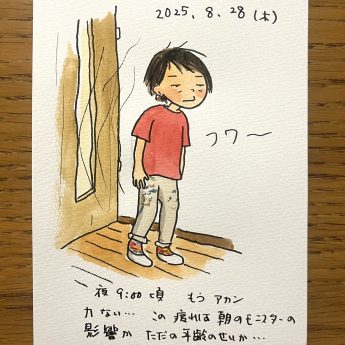 2025.8.28(木)
フワ〜
夜 9:00頃 もう アカン
力ない… この 疲れは 朝のモニターの
影響か ただの年齢のせいか…